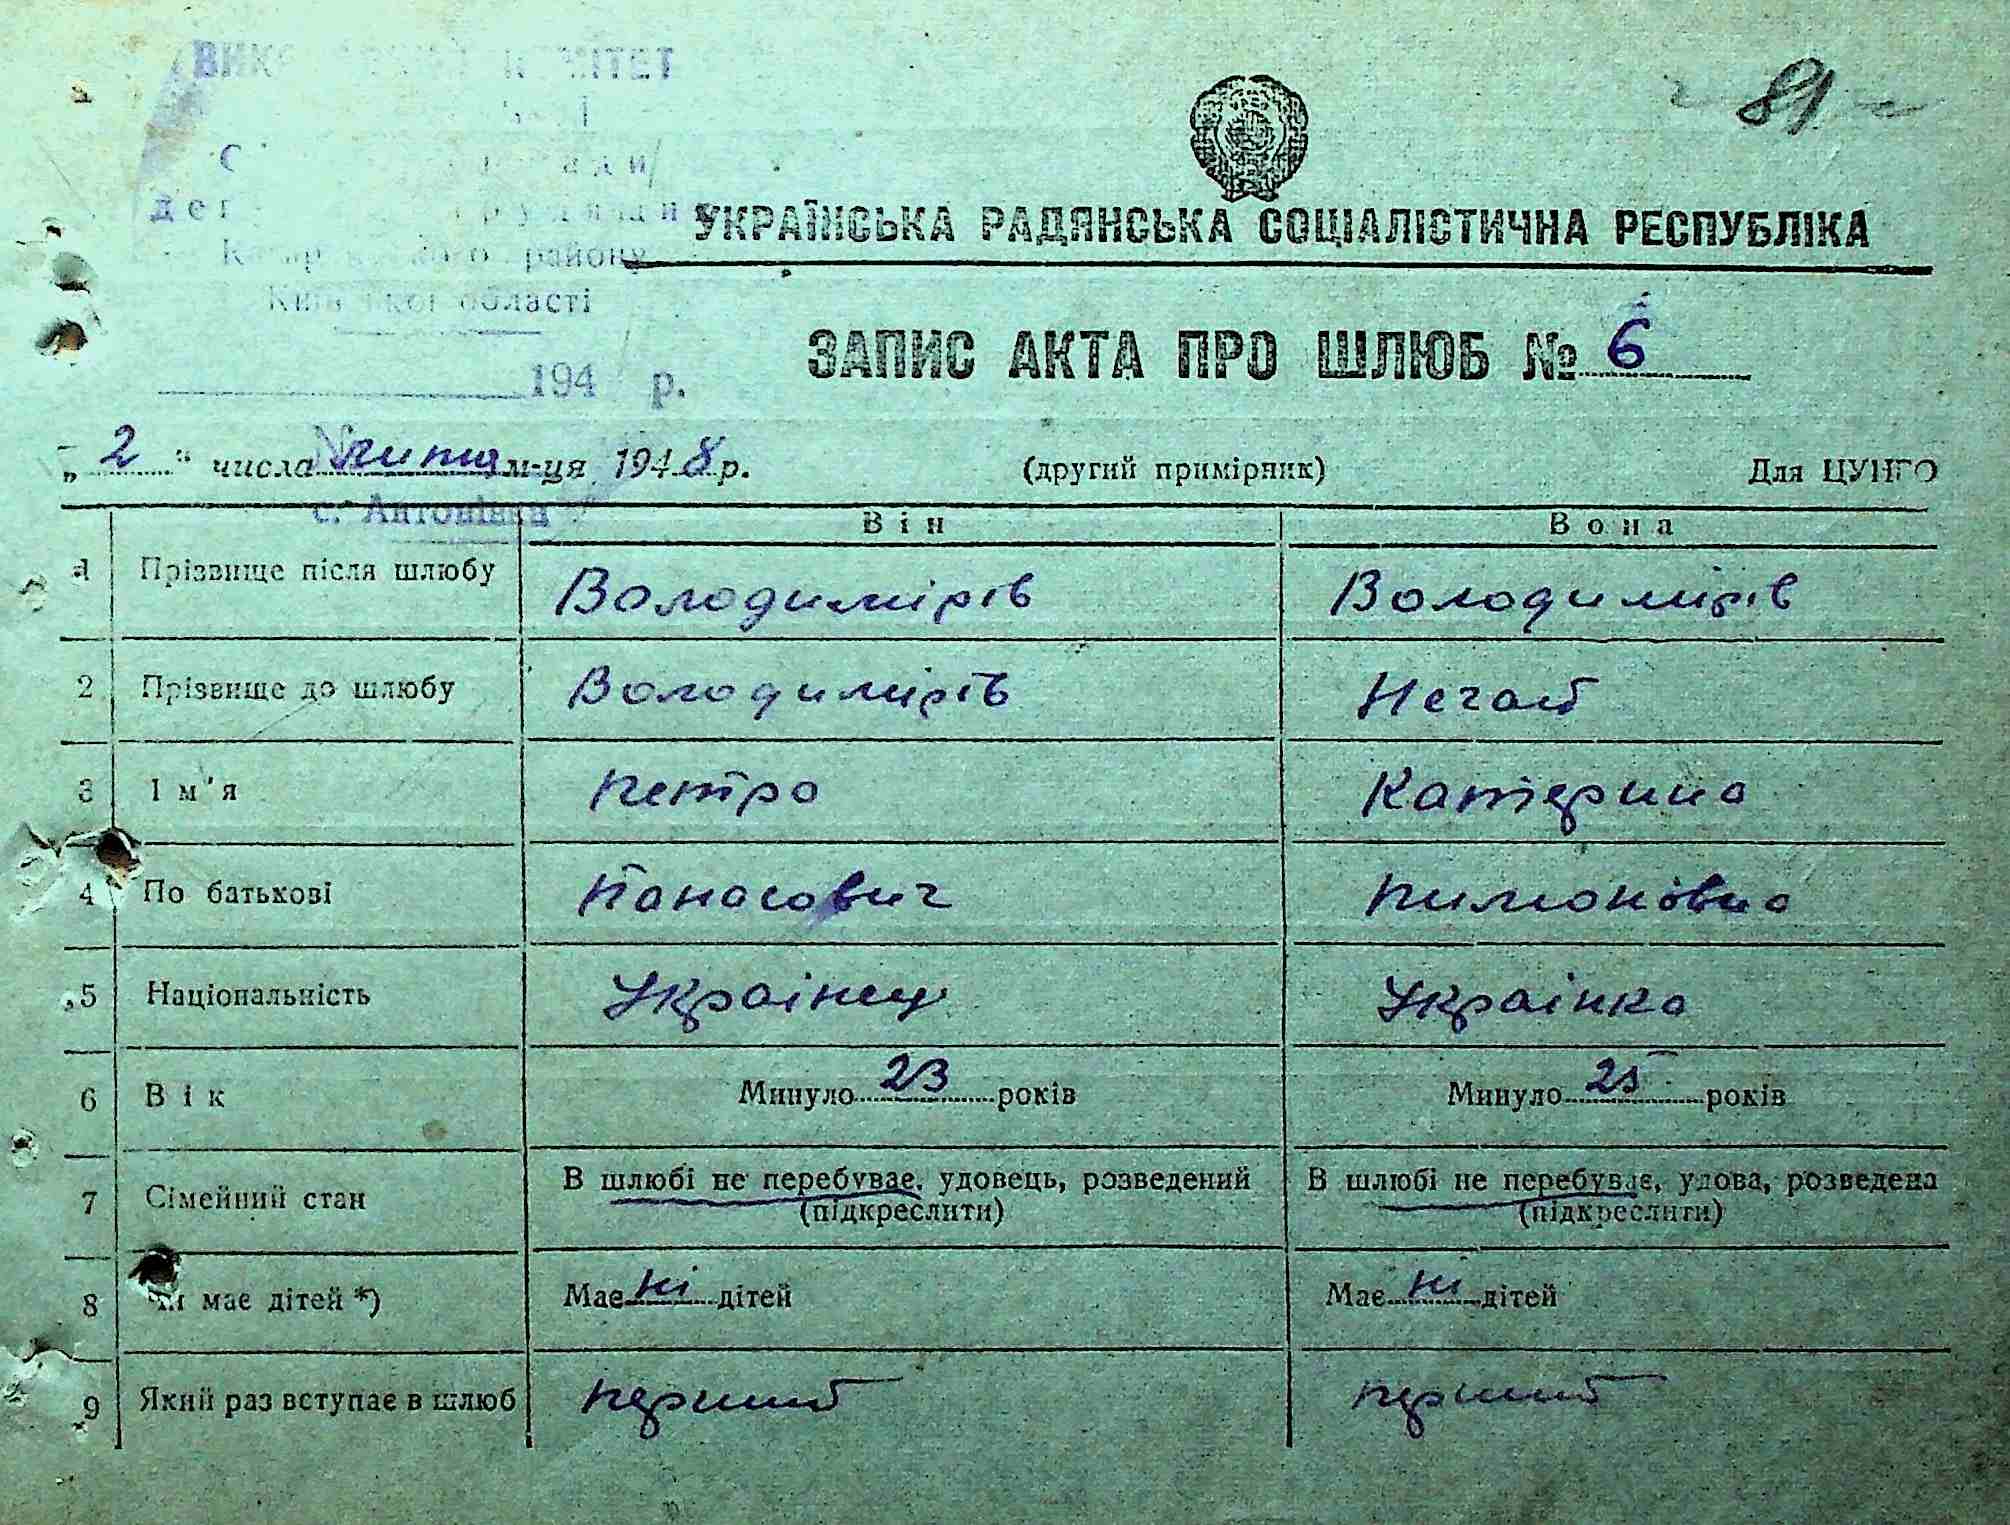 КОМІТЕТ
району
області
81
УКРАЇНСЬКА РАДЯНСЬКА СОЦІАЛІСТИЧНА РЕСПУБЛІКА
194 р.
ЗАПИС АКТА ПРО ШЛЮБ № 6
„ 2 " числа липця м-ця 1948 р. (другий примірник) Для ЦУНГО
с. Антонівка
Він Вона
1 Прізвище після шлюбу Володимирів Володимирів
2 Прізвище до шлюбу Володимирів Нечай
3 Ім'я Петро Катерина
4 По батькові Панасович Пимонівна
5 Національність Українец Українка
6 Вік Минуло 23 років Минуло 25 років
7 Сімейний стан В шлюбі не перебуває, удовець, розведений В шлюбі не перебуває, удова, розведена
(підкреслити) (підкреслити)
8 Чи має дітей *) Має ні дітей Має ні дітей
9 Який раз вступає в шлюб перший перший